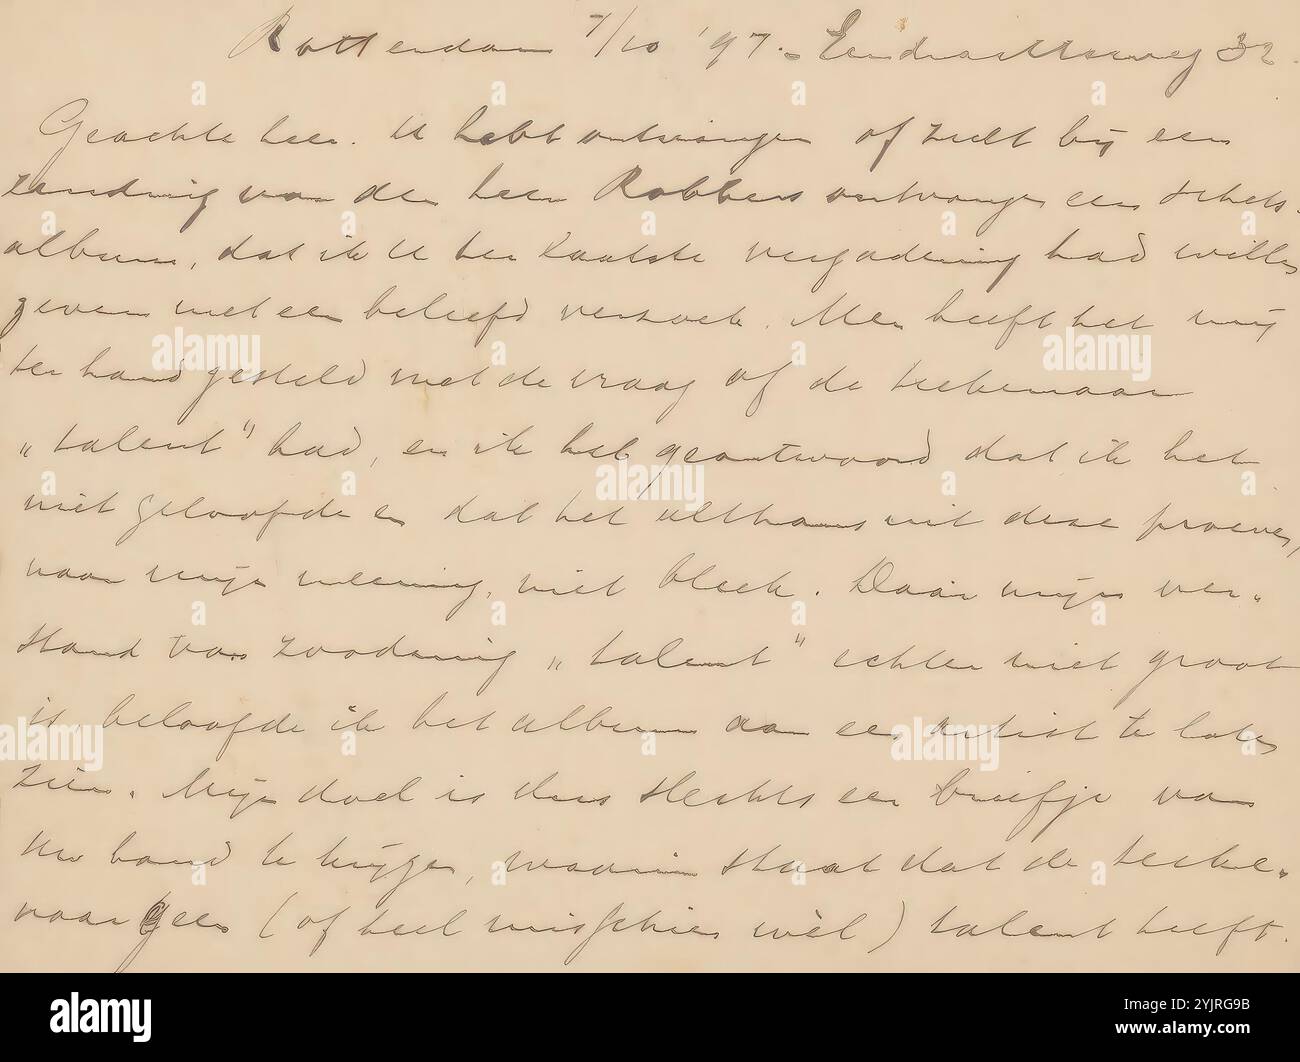 Rotterdam 7/10 '97. Eendrachtsweg 32.
Geachte heer. U hebt ontvangen of zult bij een
zending van den heer Robbers ontvangen een schets-
album, dat ik U ter laatste vergadering had willen
geven met een beleefd verzoek. Men heeft het mij
ter hand gesteld met de vraag of de teekenaar
„talent" had, en ik heb geantwoord dat ik het
niet geloofde en dat het althans uit deze proeven,
naar mijn meening, niet bleek. Daar mijn ver-
stand van zoodanig „talent" echter niet groot
is, beloofde ik het album aan een artist te laten
zien. Mijn doel is dus slechts een briefje van
Uw hand te krijgen, waarin staat dat de teeke-
naar geen (of heel misschien wèl) talent heeft.
alamy
alamy
Image ID: 2YJRG9B
www.alamy.com